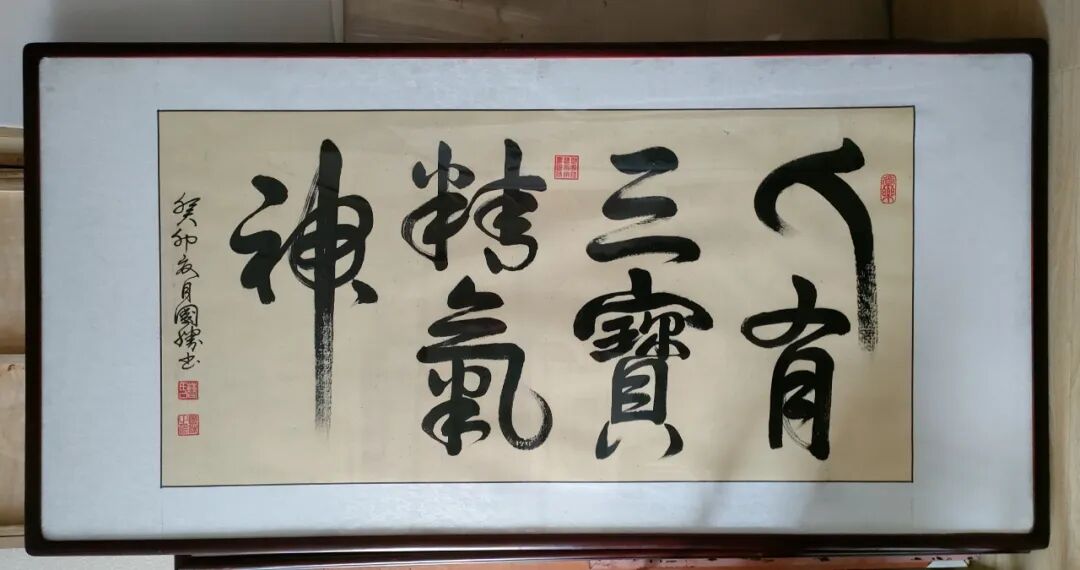 人有
三寶
精氣
神
癸卯夏月國勝书